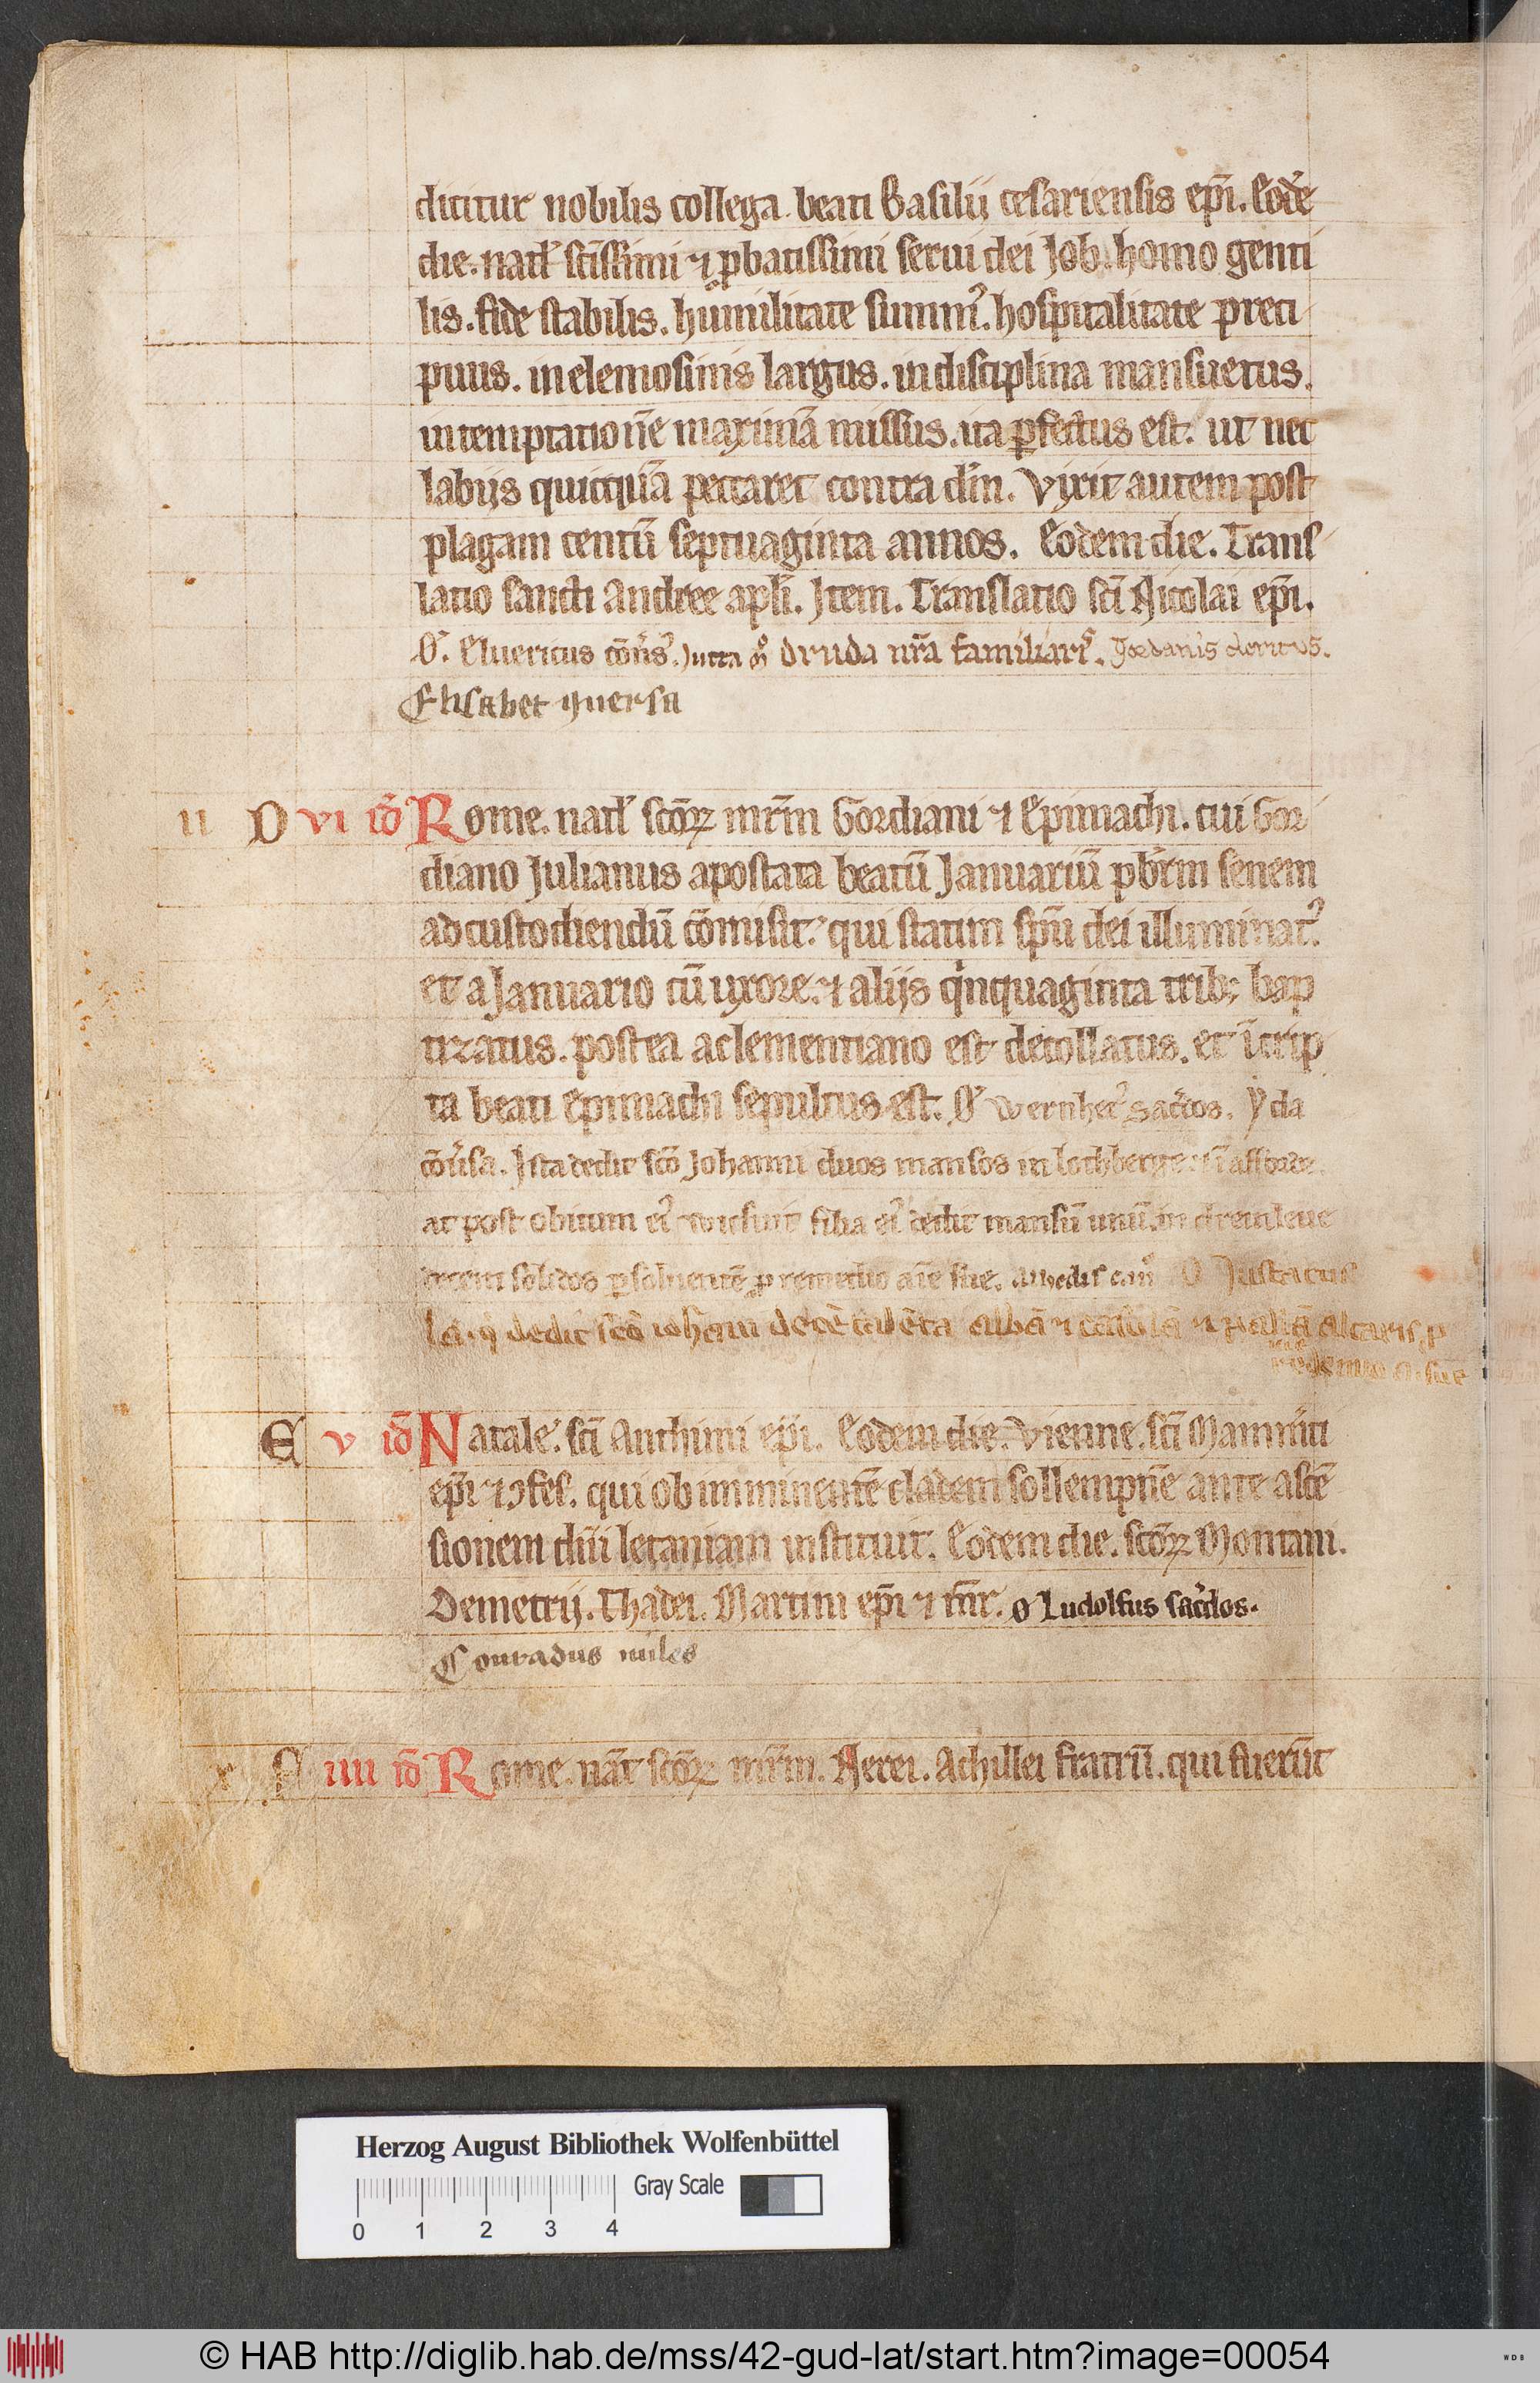 dicitur nobilis collega. beati Basilii cesariensis ep̄i. Eodē
die. natl̛ sc̄issimi ⁊ ꝓbatissimi serui dei Job. homo genti
lis. fide stabilis. humilitate summꝰ. hospitalitate preci
puus. in elemosinis largus. in disciplina mansuetus.
in temptatiōe maximā missus. ita ꝑfectus est. ut nec
labiis quicquā peccaret contra dn̄m. Vixit autem post
plagam centū septuaginta annos. Eodem die. Trans
latio sancti Andree apl̄i. Item. Translatio sc̄i Nicolai ep̄i.
O. Eluericus cōu̓sꝰ. Jutta druda nr̄a familiarꝭ. Jordanis clericus.
Elisabet ꝯuersa
II D VI id̄ Rome. natl̛ sc̄oꝝ mr̄m Gordiani ⁊ Epimachi. cui Gor
diano Julianus apostata beatū Januariū pb̄rm senem
ad custodiendū cōmisit. qui statim sp̄u dei illuminatꝰ.
et a Januario cū uxore. ⁊ aliis qinquaginta tribꝫ bap
tizatus. postea a clementiano est decollatus. et ī crip
ta beati Epimachi sepultus est. O Wernherꝰ sac̄dos. Yda
cōu̓sa. Ista dedit sc̄o Johanni duos mansos in lochberge.
at post obitum eiꝰ filia eiꝰ dedit mansū unū. in dremleue
decem solidos ꝑsoluentē ꝓ remedio aīe sue. O Justacius
la. q̄ dedit sc̄o iohāni decē talēta albā ⁊ ⁊ pallā altaris. ꝓ
remedio a. sue
E V id̄ Natale. sc̄i Anthimi ep̄i. Eodem die. Vienne. sc̄i Mam̄ti
ep̄i ⁊ ꝯfes. qui ob imminentē cladem sollempnē ante ascē
sionem dn̄i letaniam instituit. Eodem die. sc̄oꝝ Montani.
Demetrij. Thadei. Martini ep̄i ⁊ mr̄. O Ludolfus sac̄dos.
Conradus miles
X F IIII id̄ Rome. nat̄ sc̄oꝝ mr̄m. Nerei. Achillei fratrū. qui fuerūt
Herzog August Bibliothek Wolfenbüttel
Gray Scale
0 1 2 3 4
© HAB http://diglib.hab.de/mss/42-gud-lat/start.htm?image=00054
WDB